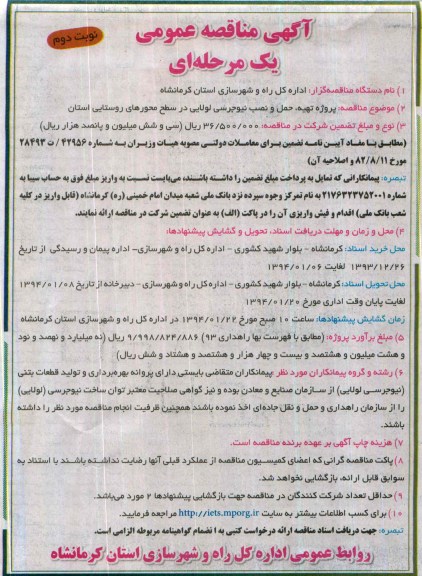 آگهی مناقصه عمومی
یک مرحله‌ای
نوبت دوم
۱) نام دستگاه مناقصه‌گزار: اداره کل راه و شهرسازی استان کرمانشاه
۲) موضوع مناقصه: پروژه تهیه، حمل و نصب نیوجرسی لولایی در سطح محورهای روستایی استان
۳) نوع و مبلغ تضمین شرکت در مناقصه: ۳۶/۵۰۰/۰۰۰ ریال (سی و شش میلیون و پانصد هزار ریال)
(مطابق با مفاد آیین نامه تضمین برای معاملات دولتی مصوبه هیات وزیران به شماره ۴۲۹۵۶ / ت ۲۸۴۹۳
مورخ ۸۲/۸/۱۱ و اصلاحیه آن)
تبصره: پیمانکارانی که تمایل به پرداخت مبلغ تضمین را داشته باشند، می‌بایست نسبت به واریز مبلغ فوق به حساب سیبا به
شماره ۲۱۷۶۴۳۲۷۵۲۰۰۱ به نام تمرکز وجوه سپرده نزد بانک ملی شعبه میدان امام خمینی (ره) کرمانشاه (قابل واریز در کلیه
شعب بانک ملی) اقدام و فیش واریزی آن را در پاکت (الف) به عنوان تضمین شرکت در مناقصه ارائه نمایند.
۴) محل و زمان و مهلت دریافت اسناد، تحویل و گشایش پیشنهادها:
محل خرید اسناد: کرمانشاه - بلوار شهید کشوری - اداره کل راه و شهرسازی- اداره پیمان و رسیدگی از تاریخ
۱۳۹۳/۱۲/۲۶ لغایت ۱۳۹۴/۰۱/۰۶
محل تحویل اسناد: کرمانشاه - بلوار شهید کشوری - اداره کل راه و شهرسازی - دبیرخانه از تاریخ ۱۳۹۴/۰۱/۰۸
لغایت پایان وقت اداری مورخ ۱۳۹۴/۰۱/۲۰
زمان گشایش پیشنهادها: ساعت ۱۰ صبح مورخ ۱۳۹۴/۰۱/۲۲ در اداره کل راه و شهرسازی استان کرمانشاه
۵) مبلغ برآورد پروژه: (مطابق با فهرست بها راهداری ۹۳) ۹/۹۹۸/۸۲۴/۸۸۶ ریال (نه میلیارد و نهصد و نود
و هشت میلیون و هشتصد و بیست و چهار هزار و هشتصد و هشتاد و شش ریال)
۶) رشته و گروه پیمانکاران مورد نظر: پیمانکاران متقاضی بایستی دارای پروانه بهره‌برداری و تولید قطعات بتنی
(نیوجرسی لولایی) از سازمان صنایع و معادن بوده و نیز گواهی صلاحیت معتبر توان ساخت نیوجرسی (لولایی)
را از سازمان راهداری و حمل و نقل جاده‌ای اخذ نموده باشند همچنین ظرفیت انجام مناقصه مورد نظر را داشته
باشند.
۷) هزینه چاپ آگهی بر عهده برنده مناقصه است.
۸) پاکت مناقصه گرانی که اعضای کمیسیون مناقصه از عملکرد قبلی آنها رضایت نداشته باشند با استناد به
سوابق قابل ارائه، بازگشایی نخواهد شد.
۹) حداقل تعداد شرکت کنندگان در مناقصه جهت بازگشایی پیشنهادها ۲ مورد می‌باشد.
۱۰) برای کسب اطلاعات بیشتر به سایت http://iets.mporg.ir مراجعه فرمایید.
تبصره: جهت دریافت اسناد مناقصه ارائه درخواست کتبی به انضمام گواهینامه مربوطه الزامی است.
روابط عمومی اداره کل راه و شهرسازی استان کرمانشاه